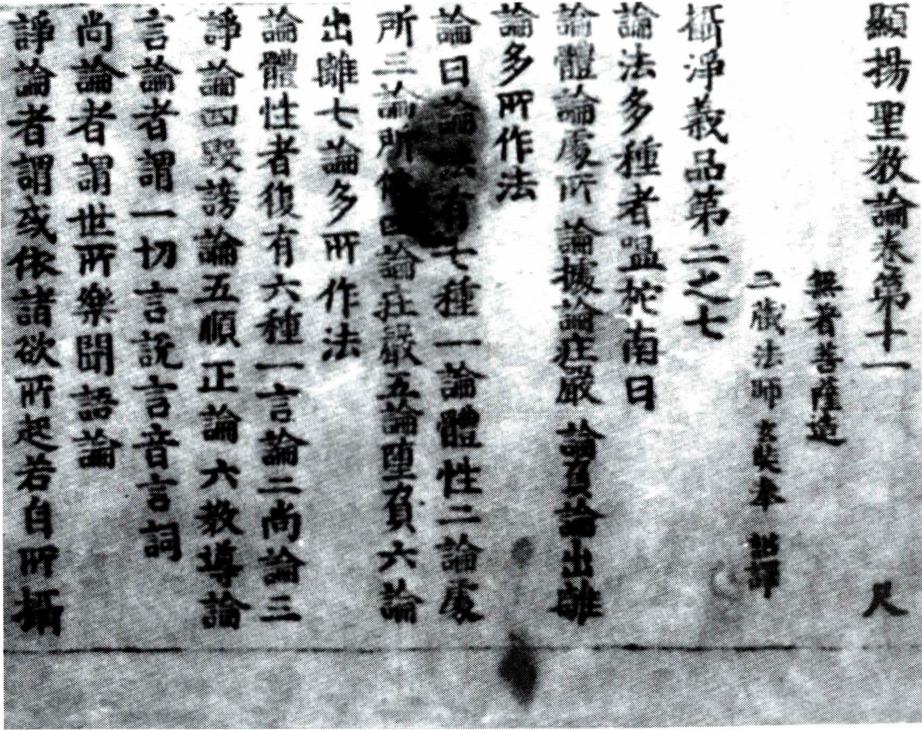 顯揚聖教論卷第十一 尺
無著菩薩造
三藏法師玄奘奉 詔譯
攝淨義品第二之七
論法多種者嗢柁南曰
論體論處所 論據論莊嚴 論負論出離
論多所作法
論曰論法有七種一論體性二論處
所三論所依四論莊嚴五論墮負六論
出離七論多所作法
論體性者復有六種一言論二尚論三
諍論四毀謗論五順正論六教導論
言論者謂一切言說言音言詞
尚論者謂世所樂聞語論
諍論者謂或依諸欲所起若自所攝